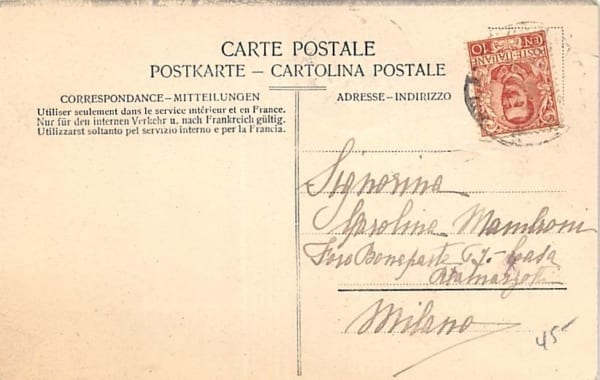 CARTE POSTALE
POSTKARTE – CARTOLINA POSTALE
CORRESPONDANCE – MITTEILUNGEN
Utiliser seulement dans le service intérieur et en France.
Nur für den internen Verkehr u. nach Frankreich gültig.
Utilizzarst soltanto pel servizio interno e per la Francia.
ADRESSE – INDIRIZZO
POSTE ITALIANE
CEN. 10
Signorina
Carolina Mambroni
Foro Bonaparte 67 - Casa
Milano
45-